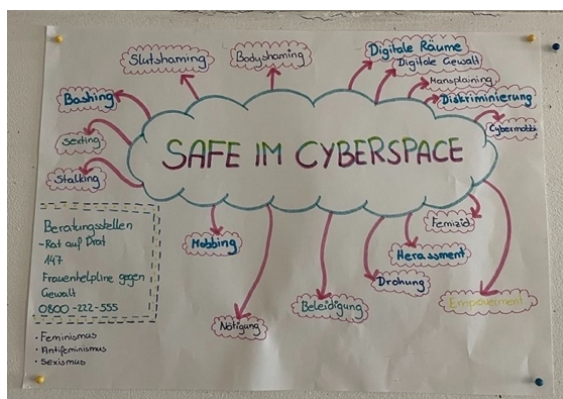 Slutshaming
Bodyshaming
Digitale Räume
Digitale Gewalt
Mansplaining
Diskriminierung
Cybermobbi
Bashing
Sexting
Stalking
SAFE IM CYBERSPACE
Femizid
Herassment
Empowerment
Drohung
Beleidigung
Nötigung
Mobbing
Beratungsstellen
-Rat auf Drat
147
Frauenhelpline gegen
Gewalt
0800-222-555
· Feminismus
· Antifeminismus
· Sexismus